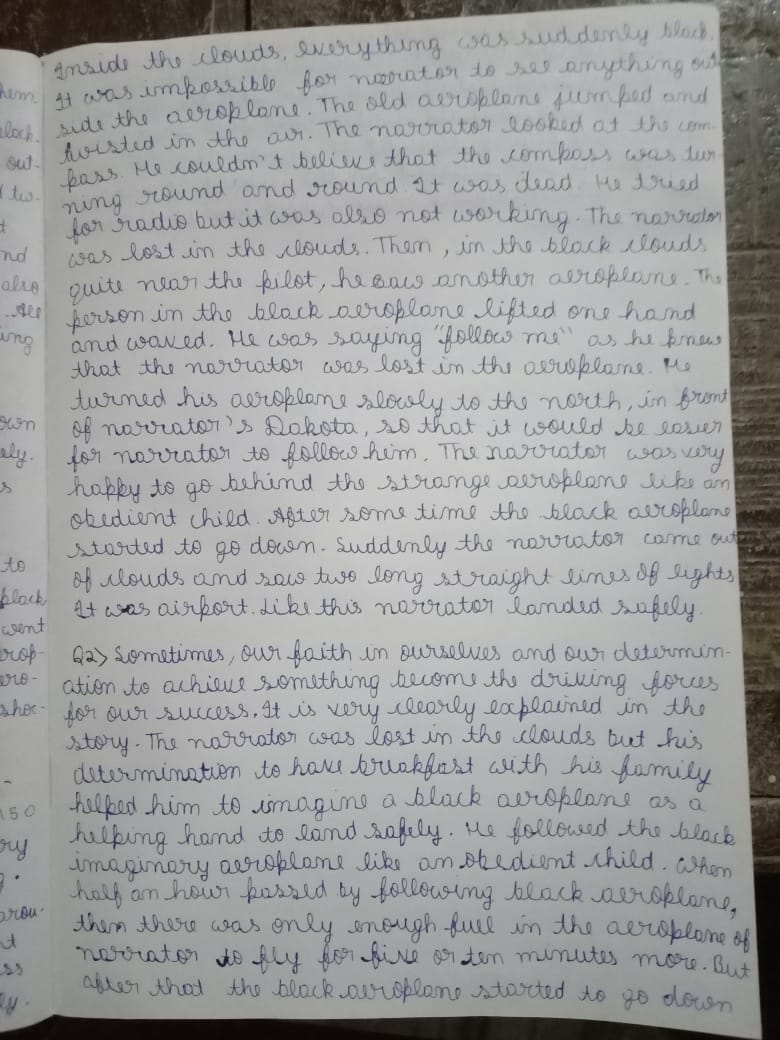 Inside the clouds, everything was suddenly black.
It was impossible for narrator to see anything out
side the aeroplane. The old aeroplane jumped and
twisted in the air. The narrator looked at the com-
pass. He couldn't believe that the compass was tur-
ning round and round It was dead. He tried
for radio but it was also not working. The narrator
was lost in the clouds. Then, in the black clouds
quite near the pilot, he saw another aeroplane. The
person in the black aeroplane lifted one hand
and waved. He was saying "follow me" as he knew
that the narrator was lost in the aeroplane. He
turned his aeroplane slowly to the north, in front
of narrator's Dakota, so that it would be easier
for narrator to follow him. The narrator was very
happy to go behind the strange aeroplane like an
obedient child. After some time the black aeroplane
started to go down. Suddenly the narrator came out
of clouds and saw two long straight lines of lights
It was airport. Like this narrator landed safely.
Q2> Sometimes, our faith in ourselves and our determin-
ation to achieve something become the driving forces
for our success. It is very clearly explained in the
story. The narrator was lost in the clouds but his
determination to have breakfast with his family
helped him to imagine a black aeroplane as a
helping hand to land safely. He followed the black
imaginary aeroplane like an obedient child. When
half an hour passed by following black aeroplane,
then there was only enough fuel in the aeroplane of
narrator to fly for five or ten minutes more. But
after that the black aeroplane started to go down